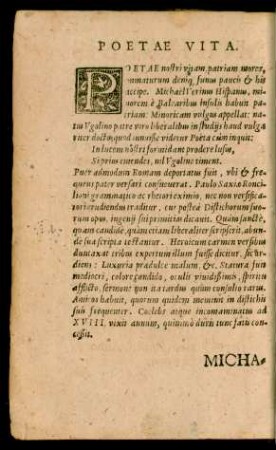 POETAE VITA.
POETAE nostri vitam patriam mores,
immaturum deniq; funus paucis & his
accipe. Michael Verinus Hispanus, mi
norem è Balearibus insulis habuit pa
triam: Minoricam vulgus appellat: na
tus Vgolino patre viro liberalibus in studijs haud vulga
riter docto, quod innuisse videtur Poeta cùm inquit:
In lucem nostri formidant prodere lusus,
Ni prius emendes, vel Vgoline timent.
Puer admodum Romam deportatus fuit, vbi & fre
quens pater versari consueuerat. Paulo Saxio Ronci
lioni grammatico et rhetori eximio, nec non versifica
tori erudiendus traditur, cui posteà Distichorum suo
rum opus, ingenij sui primitias dicauit. Quàm sanctè,
quàm candidè, quàm etiam liberaliter scripserit, abun
de sua scripta testantur. Heroicum carmen versibus
duntaxat tribus expertum illum fuisse dicitur, sic or
diens: Luxuria prædulce malum, &c. Statura fuit
mediocri, colore candido, oculis viuidissimis, spiritu
afflicto, sermone non ita tardus quàm consulto rarus.
Amicos habuit, quorum quidem meminit in distichis
suis frequenter. Coelebs atque incontaminatus ad
XVIII. vixit annum, quo immò duris tunc fatis con
cessit.
MICHA-